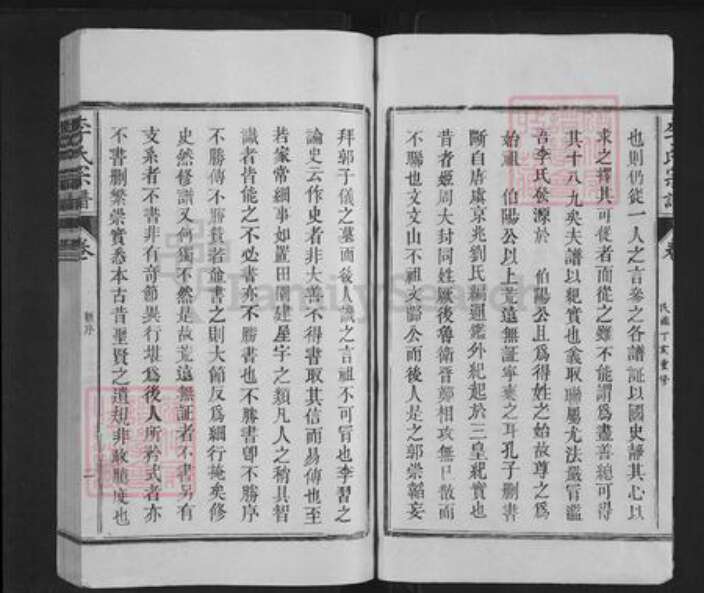 李氏宗譜
卷
民國丁亥重修
也則仍從一人之言參之各譜証以國史諺其心以
求之釋其可從者而從之雖不能謂為盡善總可得
其十八九矣夫譜以紀實也義取聯屬尤法嚴冒濫
吾李氏發源於 伯陽公且為得姓之始故尊之為
始祖 伯陽公以上荒遠無証寧棄之耳孔子刪書
斷自唐虞京兆劉氏編通鑑外紀起於三皇紀實也
昔者姬周大封同姓厥後魯衛晉鄭相攻無已散而
不聯也文文山不祖文翁公而後人是之郭崇韜妄
拜郭子儀之墓而後人譏之言祖不可冒也李習之
論史云作史者非大善不得書取其信而易傳也至
若家常細事如置田園建屋宇之類凡人之稍具智
識者皆能之不必書亦不勝書也不勝書即不勝序
不勝傳不勝贊若俞書之則大節反為細行掩矣修
史然修譜又何獨不然是故荒遠無証者不書另有
支系者不書非有奇節異行堪為後人所矜式者亦
不書刪繁崇實悉本古昔聖賢之遺規非敢臆度也
李氏宗譜
卷
類序
二
FamilySearch